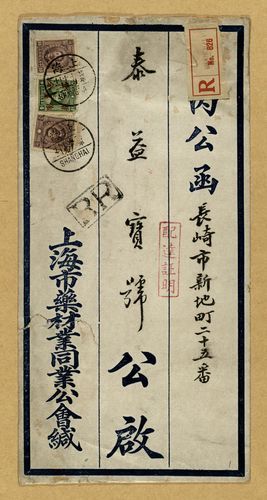 內公函
長崎市新地町二十五番
配達証明
泰益寶號
公啟
上海市藥材業同業公會緘
R
No. 826
上海
SHANGHAI
A.R.